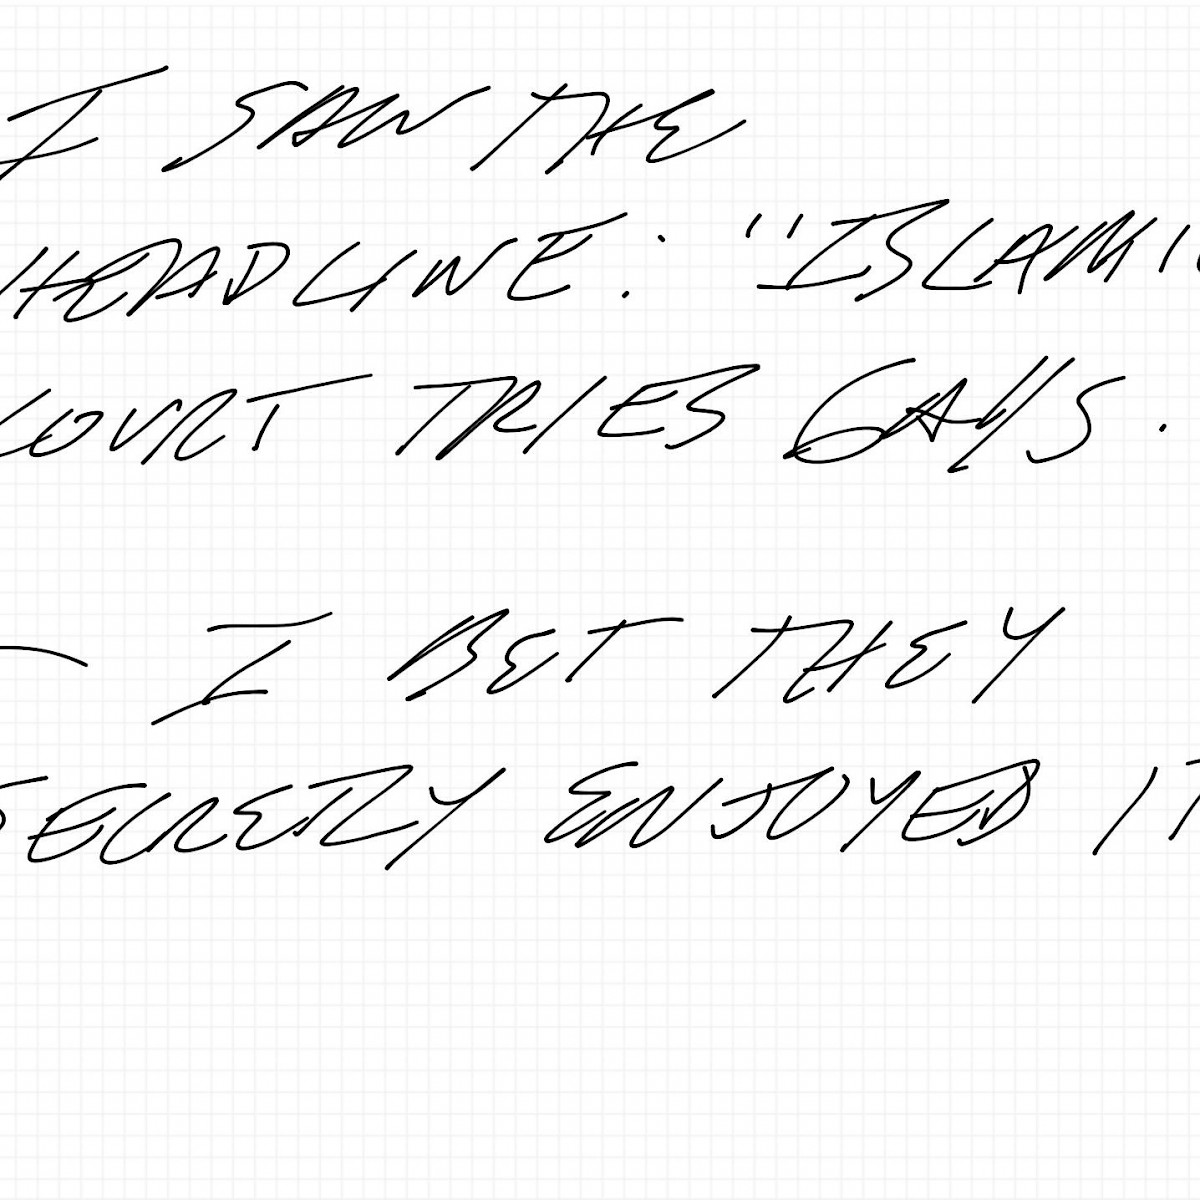 I SAW THE
HEADLINE: "ISLAMIC
COURT TRIES GAYS.
— I BET THEY
SECRETLY ENJOYED IT